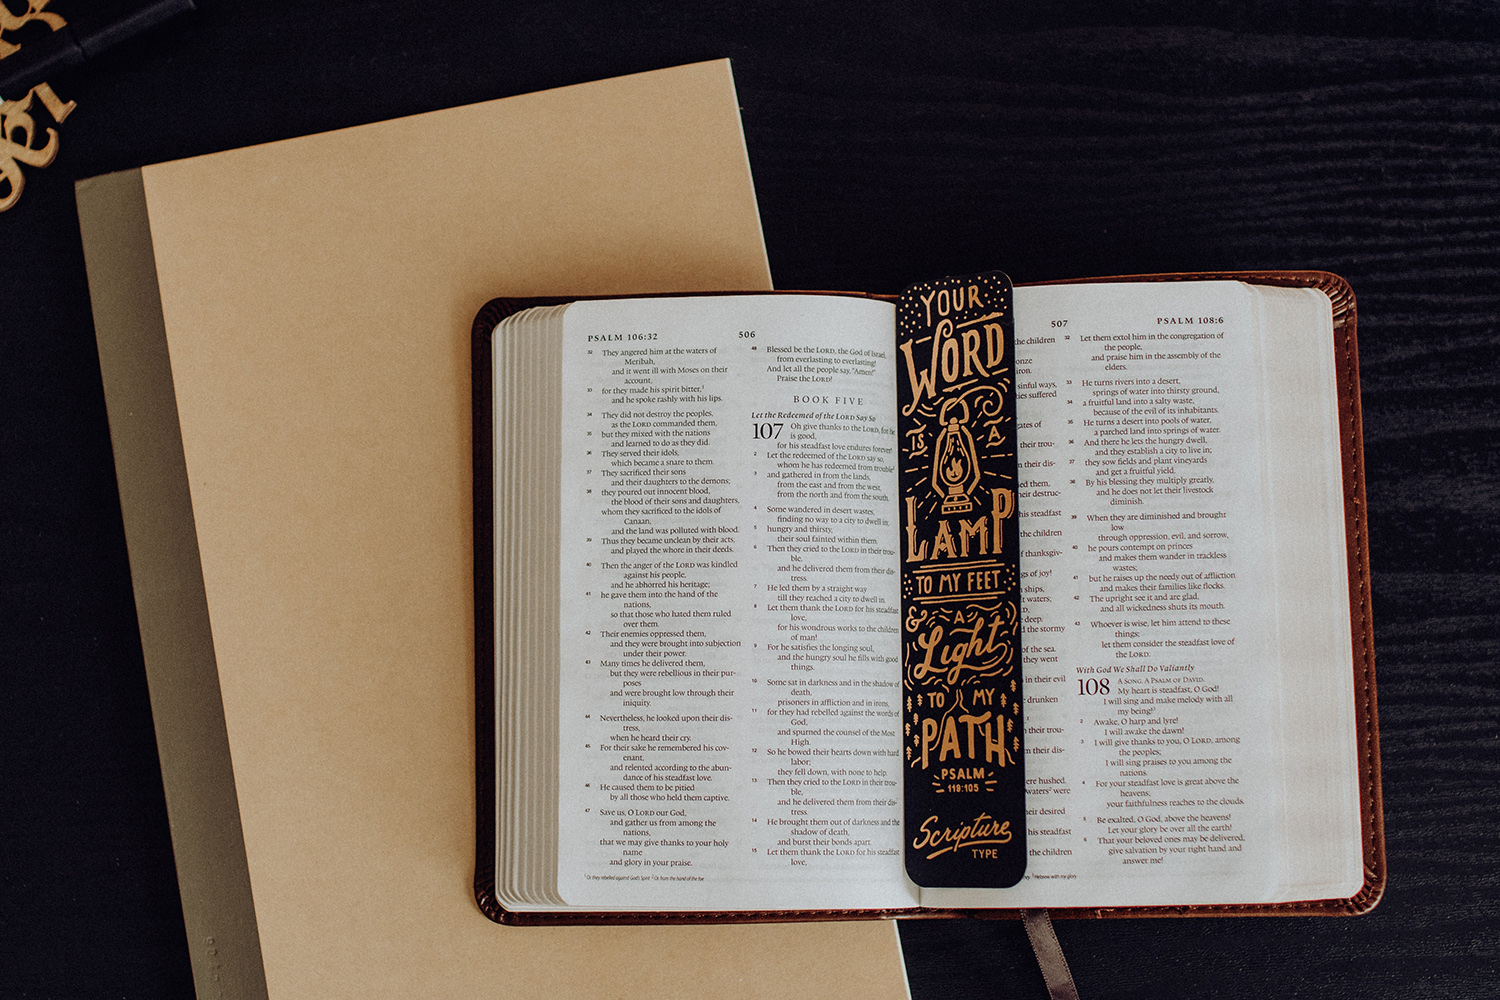 PSALM 106:32
506
32 They angered him at the waters of
Meribah,
and it went ill with Moses on their
account,
33 for they made his spirit bitter,1
and he spoke rashly with his lips.
34 They did not destroy the peoples,
as the LORD commanded them,
35 but they mixed with the nations
and learned to do as they did.
36 They served their idols,
which became a snare to them.
37 They sacrificed their sons
and their daughters to the demons;
38 they poured out innocent blood,
the blood of their sons and daughters,
whom they sacrificed to the idols of
Canaan,
and the land was polluted with blood.
39 Thus they became unclean by their acts,
and played the whore in their deeds.
40 Then the anger of the LORD was kindled
against his people,
and he abhorred his heritage;
41 he gave them into the hand of the
nations,
so that those who hated them ruled
over them.
42 Their enemies oppressed them,
and they were brought into subjection
under their power.
43 Many times he delivered them,
but they were rebellious in their pur-
poses
and were brought low through their
iniquity.
44 Nevertheless, he looked upon their dis-
tress,
when he heard their cry.
45 For their sake he remembered his cov-
enant,
and relented according to the abun-
dance of his steadfast love.
46 He caused them to be pitied
by all those who held them captive.
47 Save us, O LORD our God,
and gather us from among the
nations,
that we may give thanks to your holy
name
and glory in your praise.
1 Or they rebelled against God's Spirit 2 Or from the hand of the foe
48 Blessed be the LORD, the God of Israel,
from everlasting to everlasting!
And let all the people say, "Amen!"
Praise the LORD!
BOOK FIVE
Let the Redeemed of the LORD Say So
107 Oh give thanks to the LORD, for he
is good,
for his steadfast love endures forever!
2 Let the redeemed of the LORD say so,
whom he has redeemed from trouble
3 and gathered in from the lands,
from the east and from the west,
from the north and from the south.
4 Some wandered in desert wastes,
finding no way to a city to dwell in;
5 hungry and thirsty,
their soul fainted within them.
6 Then they cried to the LORD in their trou-
ble,
and he delivered them from their dis-
tress.
7 He led them by a straight way
till they reached a city to dwell in.
8 Let them thank the LORD for his steadfast
love,
for his wondrous works to the children
of man!
9 For he satisfies the longing soul,
and the hungry soul he fills with good
things.
10 Some sat in darkness and in the shadow of
death,
prisoners in affliction and in irons,
11 for they had rebelled against the words of
God,
and spurned the counsel of the Most
High.
12 So he bowed their hearts down with hard
labor;
they fell down, with none to help.
13 Then they cried to the LORD in their trou-
ble,
and he delivered them from their dis-
tress.
14 He brought them out of darkness and the
shadow of death,
and burst their bonds apart.
15 Let them thank the LORD for his steadfast
love,
YOUR
WORD
IS A
LAMP
TO MY FEET
& A
Light
TO MY
PATH
PSALM
119:105
Scripture
TYPE
507
PSALM 108:6
the children
iron.
sinful ways,
suffered
gates of
their trou-
their dis-
them,
their destruc-
his steadfast
the children
of thanksgiv-
of joy!
ships,
waters;
deep.
the stormy
of the sea.
they went
in their evil
drunken
their trou-
their dis-
were hushed.
waters2 were
their desired
his steadfast
the children
2 Hebrew with my glory
32 Let them extol him in the congregation of
the people,
and praise him in the assembly of the
elders.
33 He turns rivers into a desert,
springs of water into thirsty ground,
34 a fruitful land into a salty waste,
because of the evil of its inhabitants.
35 He turns a desert into pools of water,
a parched land into springs of water.
36 And there he lets the hungry dwell,
and they establish a city to live in;
37 they sow fields and plant vineyards
and get a fruitful yield.
38 By his blessing they multiply greatly,
and he does not let their livestock
diminish.
39 When they are diminished and brought
low
through oppression, evil, and sorrow,
40 he pours contempt on princes
and makes them wander in trackless
wastes;
41 but he raises up the needy out of affliction
and makes their families like flocks.
42 The upright see it and are glad,
and all wickedness shuts its mouth.
43 Whoever is wise, let him attend to these
things;
let them consider the steadfast love of
the LORD.
With God We Shall Do Valiantly
108 A SONG. A PSALM OF DAVID.
My heart is steadfast, O God!
I will sing and make melody with all
my being!3
2 Awake, O harp and lyre!
I will awake the dawn!
3 I will give thanks to you, O LORD, among
the peoples;
I will sing praises to you among the
nations.
4 For your steadfast love is great above the
heavens;
your faithfulness reaches to the clouds.
5 Be exalted, O God, above the heavens!
Let your glory be over all the earth!
6 That your beloved ones may be delivered,
give salvation by your right hand and
answer me!